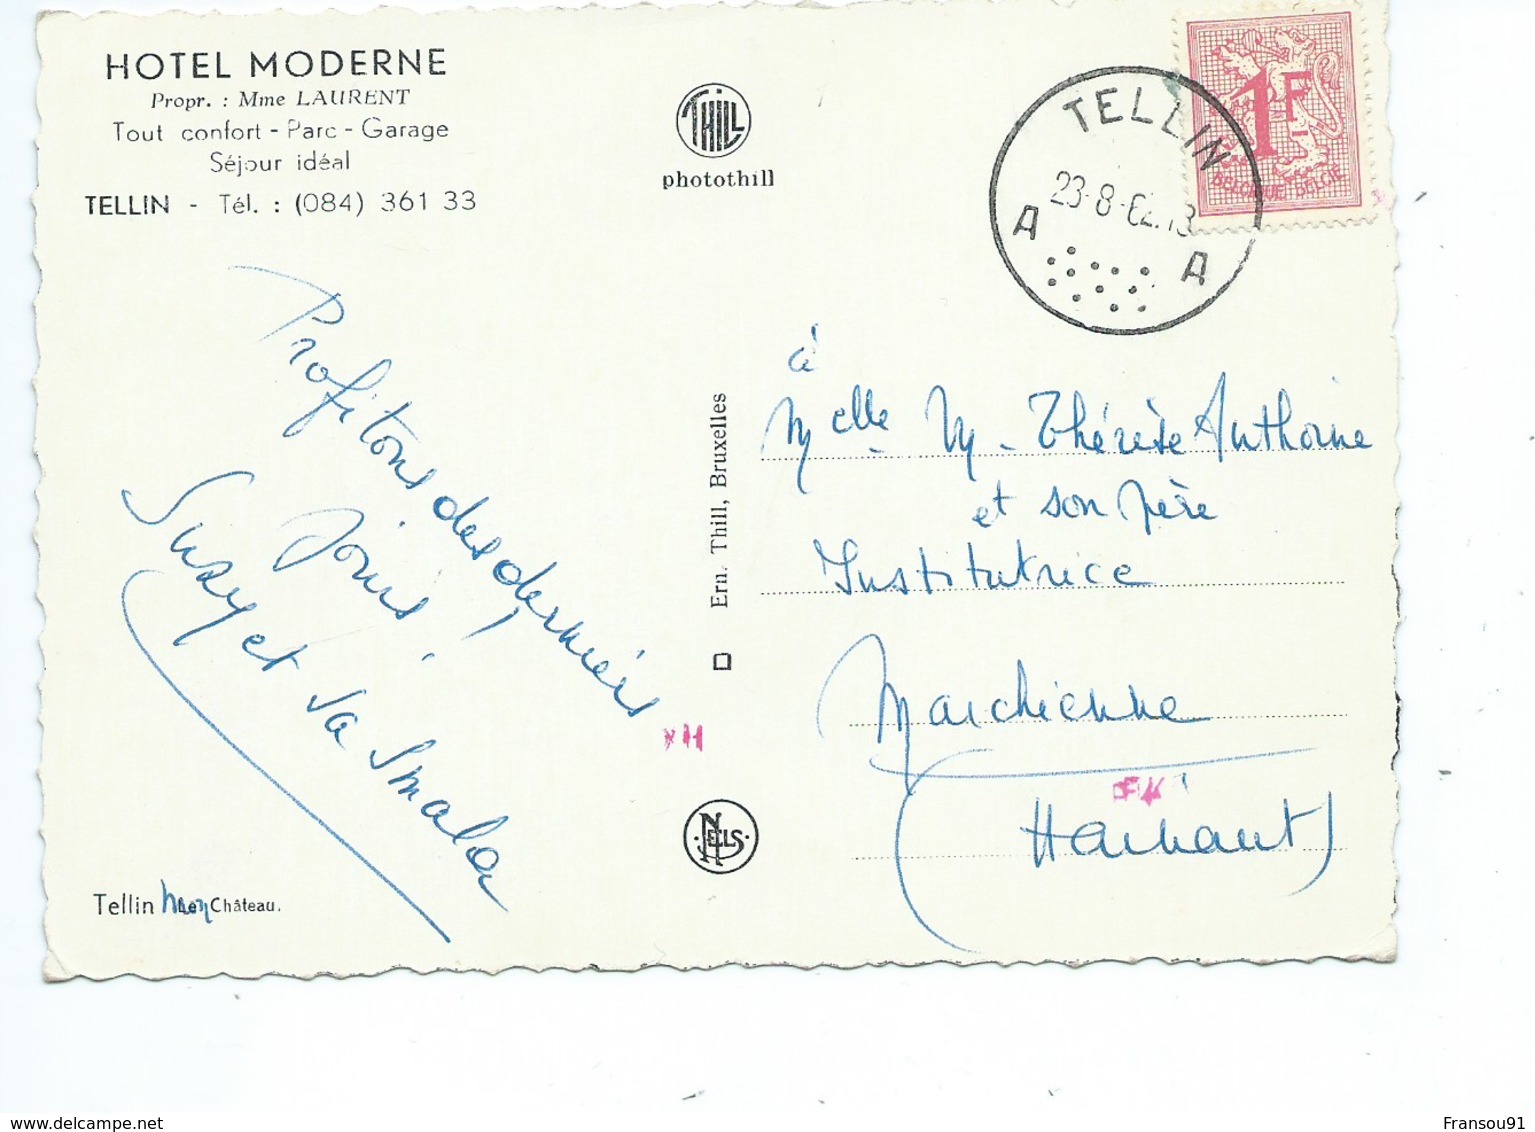 HOTEL MODERNE
Propr. : Mme LAURENT
Tout confort - Parc - Garage
Séjour idéal
TELLIN - Tél. : (084) 361 33
THILL
photothill
TELLIN
23-8-62.13
A A
1F
BELGIQUE-BELGIË
Profitons des derniers
jours !
Suzy et sa smala
Ern. Thill, Bruxelles
NELS
à
Melle M-Thérèse Anthoine
et son père
Institutrice
Marchienne
(Hainaut)
Tellin mon Château.
Fransou91